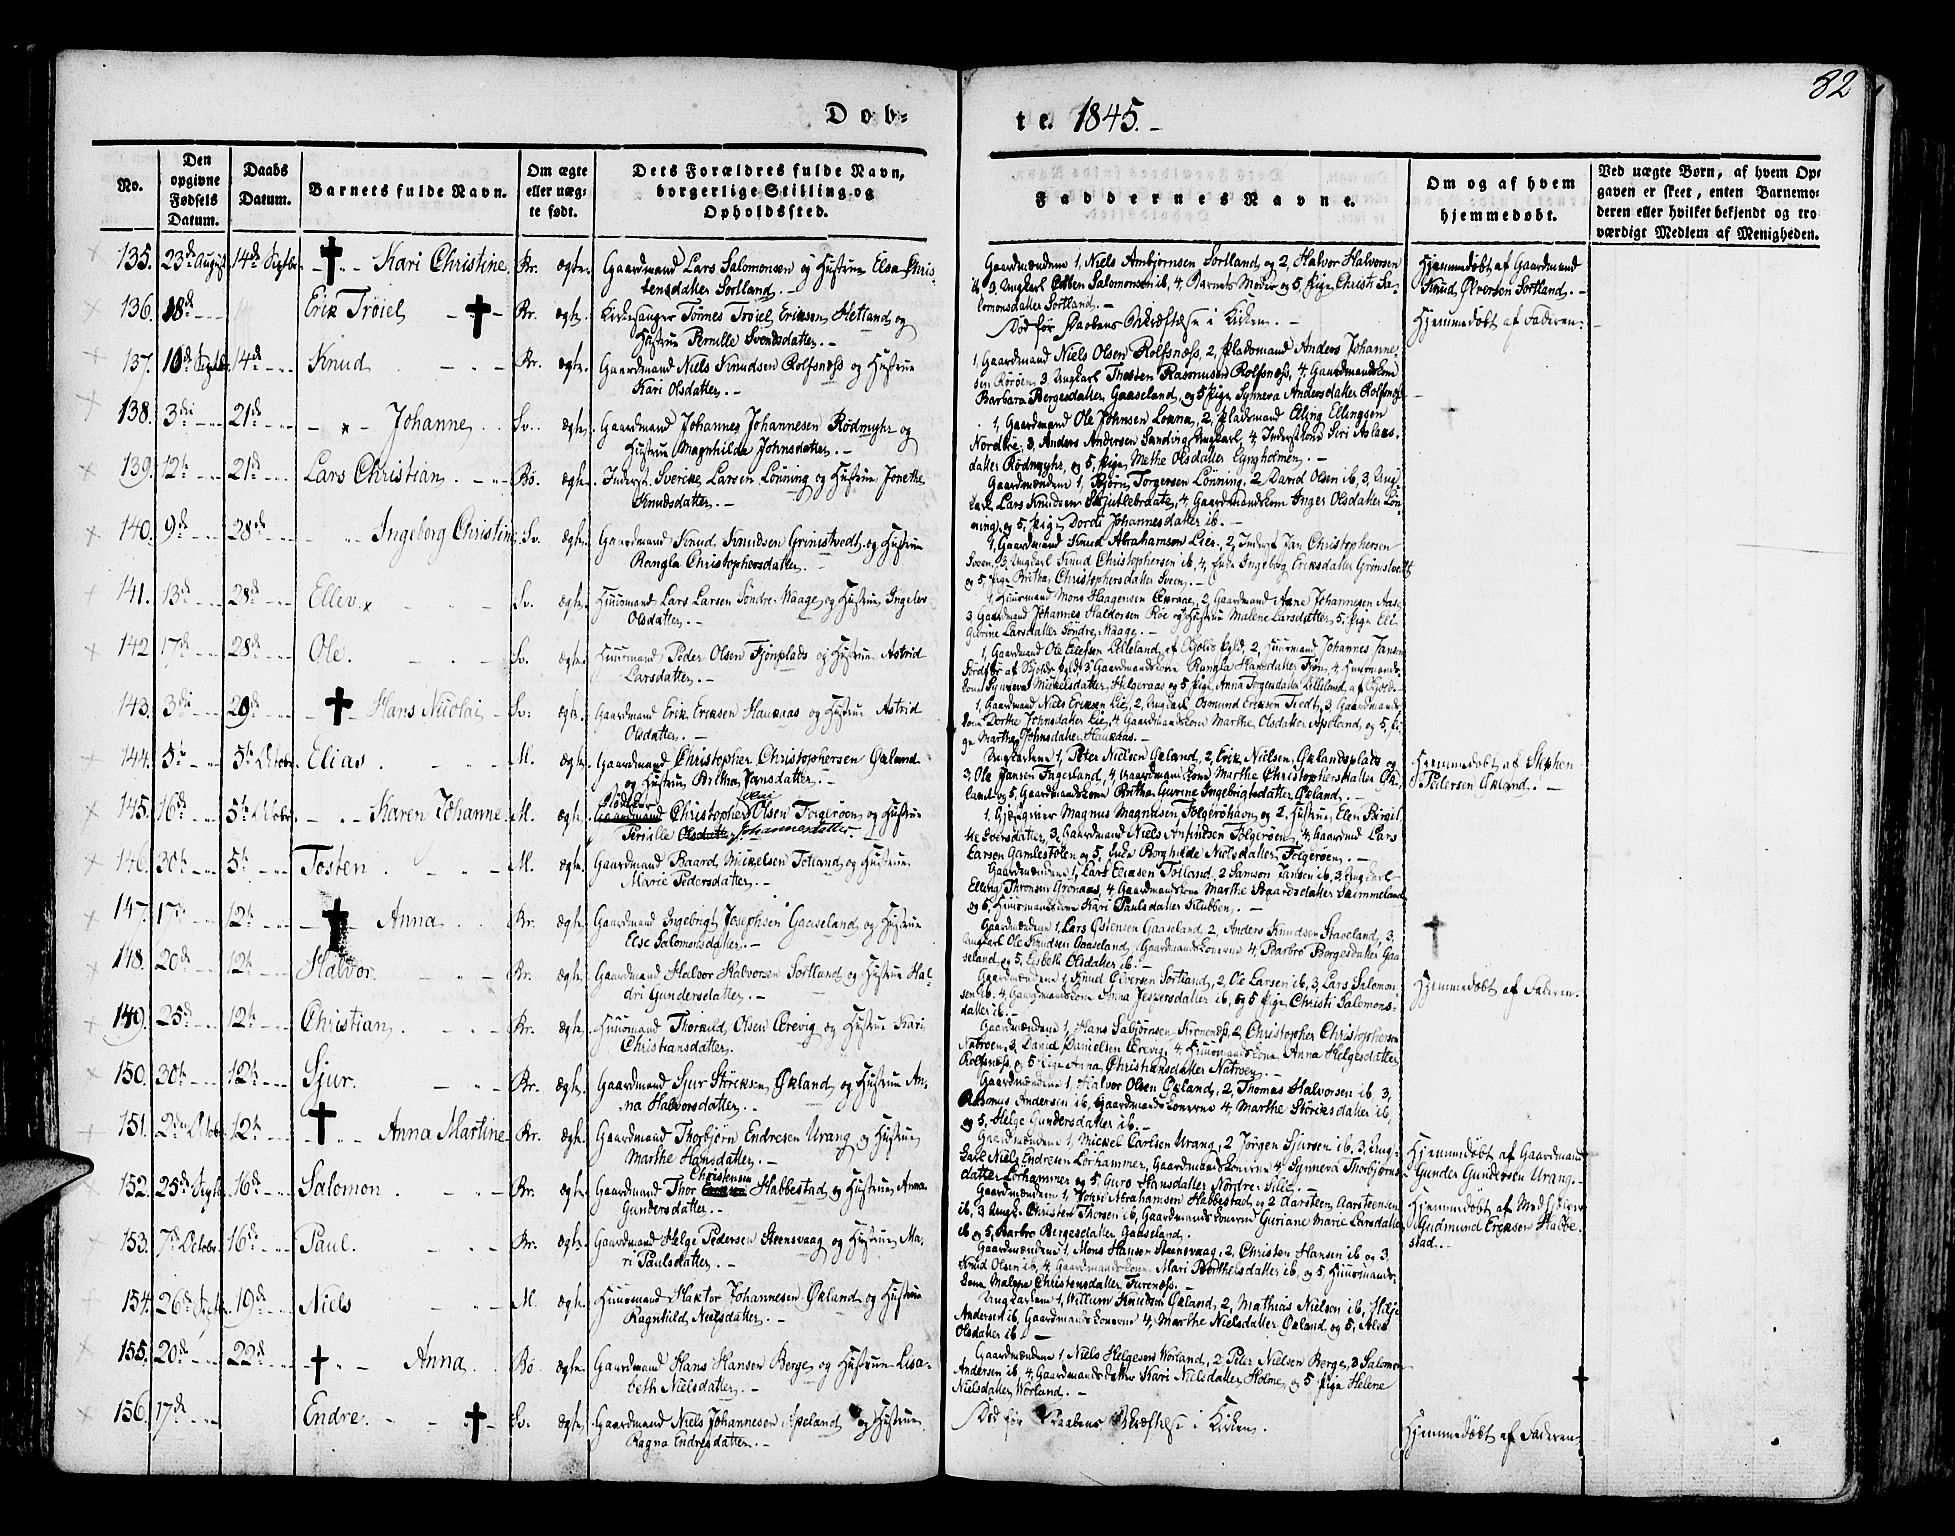 82
Døb-
te. 1845.-
No.
Den
opgivne
Fødsels
Datum.
Daabs
Datum.
Barnets fulde Navn.
Om ægte
eller uæg-
te født.
Dets Forældres fulde Navn,
borgerlige Stilling og
Opholdssted.
Faddernes Navne.
Om og af hvem
hjemmedøbt.
Ved uægte Børn, af hvem Op-
gaven er skeet, enten Barnemo-
deren eller hvilket bekjendt og tro-
værdigt Medlem af Menigheden.
135. 23de August 14de Septbr. Kari Christine Br. ægte. Gaardmand Lars Salomonsen og Hustrue Elsa Chris-
tensdatter Sortland.-
Gaardmændene 1, Niels Ambjørnsen Sortland og 2, Halvor Halvorsen
ib, 3, Ungkarl Østen Salomonsen ib, 4, Barnets Moder og 5, Pige Christi Sa-
lomonsdatter Sortland.-
Hjemmedøbt af Gaardmand
Knud Øiversen Sortland.-
136. 18de Erik Trøiel Br. ægte. Kirkesanger Tønnes Trøiel Eriksen Hetland og
Hustrue Pernille Svendsdatter.-
Død før Daabens Bekræftelse i Kirken.-
Hjemmedøbt af Faderen.
137. 10de Septbr. 14de Knud Br. ægte. Gaardmand Niels Knudsen Rolfsnæss og Hustrue
Kari Olsdatter.-
1, Gaardmand Niels Olsen Rolfsnæss, 2, Pladsmand Anders Johanne-
sen Rørøen, 3, Ungkarl Thosten Rasmussen Rolfsnæss, 4, Gaardmandskone
Barbara Børgesdatter Gaaseland, og 5 Pige Synneva Andersdatter Rolfsnæss
138. 3die 21de Johanne Sv. ægte. Gaardmand Johannes Johannesen Rødmyhr og
Hustrue Magnhilda Johnsdatter.-
1, Gaardmand Ole Johnsen Lonna, 2, Pladsmand Elling Ellingsen
Nordtre, 3, Anders Andersen Sandvig Ungkarl, 4, Inderstkone Siri Aslaks-
datter Rødmyhr, og 5, Pige Methe Olsdatter Lyngholmen.-
139. 12te 21de Lars Christian Bø. ægte. Inderst Sverke Larsen Lønning og Hustrue Jonetha
Knudsdatter.-
Gaardmændene 1, Bjørn Torgersen Lønning, 2 David Olsen ib, 3, Ung-
karl Lars Knudsen Skjutlebraate, 4, Gaardmandskone Inger Olsdatter Løn-
ning, og 5, Pige Dordi Johannesdatter ib.-
140. 9de 28de Ingeborg Christine Sv. ægte. Gaardmand Knud Knudsen Grimstvedt og Hustrue
Rangla Christophersdatter.-
1, Gaardmand Knud Abrahamsen Lier, 2, Inderst Jan Christophersen
Sveen, 3, Ungkarl Knud Christophersen ib, 4, Enke Ingeborg Eriksdatter Grimstvedt
og 5, Pige Britha Christophersdatter Sveen.-
141. 13de 28de Ellev Sv. ægte. Huusmand Lars Larsen Søndre-Waage og Hustrue Ingeber
Olsdatter.-
1, Huusmand Mons Haagensen, 2, Gaardmand Arne Johannesen Aase
3, Gaardmand Johannes Haldorsen Røe og Hustrue Malene Larsdatter, 5, Pige Eli-
Gurine Larsdatter Søndre-Waage.-
142 17de 28de Ole. Sv. ægte. Huusmand Peder Olsen Fjonplads og Hustrue Astrid
Larsdatter.-
1, Gaardmand Ole Elefsen Lilleland af Skjolds Pgld, 2, Huusmand Johannes Jansen
af Skjolds Pgld, 3 Gaardmandskone Rangla Hansdatter Fjon, 4, Huusmands-
kone Synneva Mikelsdatter Helgeraas og 5 Pige Anna Torgersdatter Lilleland af Skjold.-
143. 3die 29de Hans Nicolai Sv. ægte. Gaardmand Erik Eriksen Haukaas og Hustrue Astrid
Olsdatter.-
1, Gaardmand Niels Eriksen Lie, 2, Ungkarl Osmund Eriksen Tvedt, 3, Gaardmands-
kone Dorthe Johnsdatter Lie, 4 Gaardmandskone Marthe Olsdatter Apeland, og 5, Pi-
ge Martha Johnsdatter Haukaas.-
144. 5te 5te Octobr. Elias. M. ægte. Gaardmand Christopher Christophersen Økland
og Hustrue Britha Jansdatter.-
Ungkarlene 1, Peter Nielsen Økland, 2, Erik Nielsen Øklandsplads og
3, Ole Jansen Fagerland, 4, Gaardmandskone Marthe Christophersdatter Øk-
land og 5, Gaardmandskone Britha Gurine Ingebrigtsdatter Økland.-
Hjemmedøbt af Stephen
Pedersen Økland.-
145. 16de 5te Octobr. Karen Johanne M. ægte. Gaardmand Christopher Olsen Folgerøen og Hustrue
Pernille Olsdatter Johannesdatter.-
1, Gjæstgiver Magnus Magnusen Folgerøhavn og 2, Hustrue Elen Birgit-
te Iversdatter, 3, Gaardmand Niels Anfindsen Folgerøen, 4, Gaardmd Lars
Larsen Gamlestølen og 5, Enke Borghilde Nielsdatter Folgerøen.-
146. 30te 5te Tosten M. ægte. Gaardmand Baard Mickelsen Totland og Hustrue
Marie Pedersdatter.-
Gaardmændene 1, Lars Eliasen Totland, 2 Samson Jansen ib, 3, Ungkarl
Elling Thronsen Grønaas, 4, Gaardmandskone Marthe Baardsdatter Sæmmeland
og 5, Huusmandskone Kari Paulsdatter Klubben.-
147. 17de 12te Anna Br. ægte. Gaardmand Ingebrigt Josephsen Gaaseland, og Hustrue
Else Salomonsdatter.-
Gaardmændene 1, Lars Østensen Gaaseland, 2, Anders Knudsen Staveland, 3,
Ungkarl Ole Knudsen Gaaseland, Gaardmandskonerne 4, Barbro Børgesdatter Gaa-
seland og 5, Lisbeth Olsdatter ib.-
148. 20de 12te Halvor. Br. ægte. Gaardmand Halvor Halvorsen Sortland og Hustrue Hal-
dri Gundersdatter.-
Gaardmændene 1, Knud Øiversen Sortland, 2, Ole Larsen ib, 3, Lars Salomon-
sen ib, 4, Gaardmandskone Anna Jespersdatter ib, og 5 Pige Christi Salomons-
datter ib.-
Hjemmedøbt af Faderen.
149. 25de 12te Christian. Br. ægte. Huusmand Thorkild Olsen Ærevig og Hustrue Kari
Christiansdatter.
Gaardmændene 1, Hans Sabjørnsen Kronenæss, 2 Christopher Christophersen
Natrøen, 3, David Danielsen Ærevig, 4, Huusmandskone Anna Helgesdatter
Rolfsnæss og 5 Pige Anna Christiansdatter Natrøen.-
150. 30te 12te Sjur. Br. ægte. Gaardmand Sjur Størksen Økland og Hustrue An-
na Halvorsdatter.-
Gaardmændene 1, Halvor Olsen Økland, 2, Thomas Halvorsen ib, 3,
Rasmus Andersen ib, Gaardmandskonerne 4, Marthe Størksdatter ib,
og 5, Helge Gundersdatter ib.-
151. 2den Octobr. 12te Anna Martine Br. ægte. Gaardmand Thorbjørn Endresen Urang og Hustrue
Marthe Hansdatter.-
Gaardmændene 1, Mickel Carlsen Urang, 2, Jørgen Sjursen ib, 3, Ung-
karl Niels Endresen Lørhammer, Gaardmandskonerne 4, Synneva Thorbjørns-
datter Lørhammer og 5, Guro Hansdatter Nordre-Silde.-
Hjemmedøbt af Gaardmand
Gunder Gundersen Urang.-
152. 25de Septbr. 16de Salomon. Br. ægte. Gaardmand Thor Christensen Habbestad, og Hustrue Anna
Gundersdatter.-
Gaardmændene 1, Abrahamsen Habbestad, og 2 Aarsteen Aarsteensen
ib, 3 Ungk. Christen Thorsen ib, Gaardmandskonerne Guriane Marie Larsdatter
ib og 5, Barbro Børgesdatter Gaaseland.
Hjemmedøbt af Medhjelper
Gudmund Eriksen Habbe-
stad.-
153. 7de Octobr. 16de Paul. Br. ægte. Gaardmand Helge Pedersen Steensvaag og Hustrue Ma-
ri Paulsdatter.-
Gaardmændene 1, Mons Hansen Steensvaag, 2, Christen Hansen ib og 3
Knud Olsen ib, 4, Gaardmandskone Mari Berthelsdatter ib, og 5, Huusmands-
kone Malene Christensdatter Furenæss.-
154. 26de Septbr. 19de Niels M. ægte. Huusmand Haktor Johannesen Økland og Hustrue
Ragnhild Nielsdatter.-
Ungkarlene 1, Willum Knudsen Økland, 2, Mathias Nielsen ib, Helje
Andersen ib, Gaardmandskonerne 4, Marthe Nielsdatter Økland og 5,
Olsdatter ib.-
155. 20de 22de Anna Bø ægte. Gaardmand Hans Hansen Berge og Hustrue Lisa-
beth Nielsdatter.-
Gaardmændene 1, Niels Helgesen Wørland, 2 Peter Nielsen Berge, 3 Salomon
Andersen ib, 4, Gaardmandsdatter Kari Nielsdatter Holme, og 5 Pige Helene
Nielsdatter Wørland.-
156. 17de Endre. Sv. ægte. Gaardmand Niels Johannesen Apeland og Hustrue
Ragna Endresdatter.-
Død før Daabens Bekræftelse i Kirken.
Hjemmedøbt af Faderen.